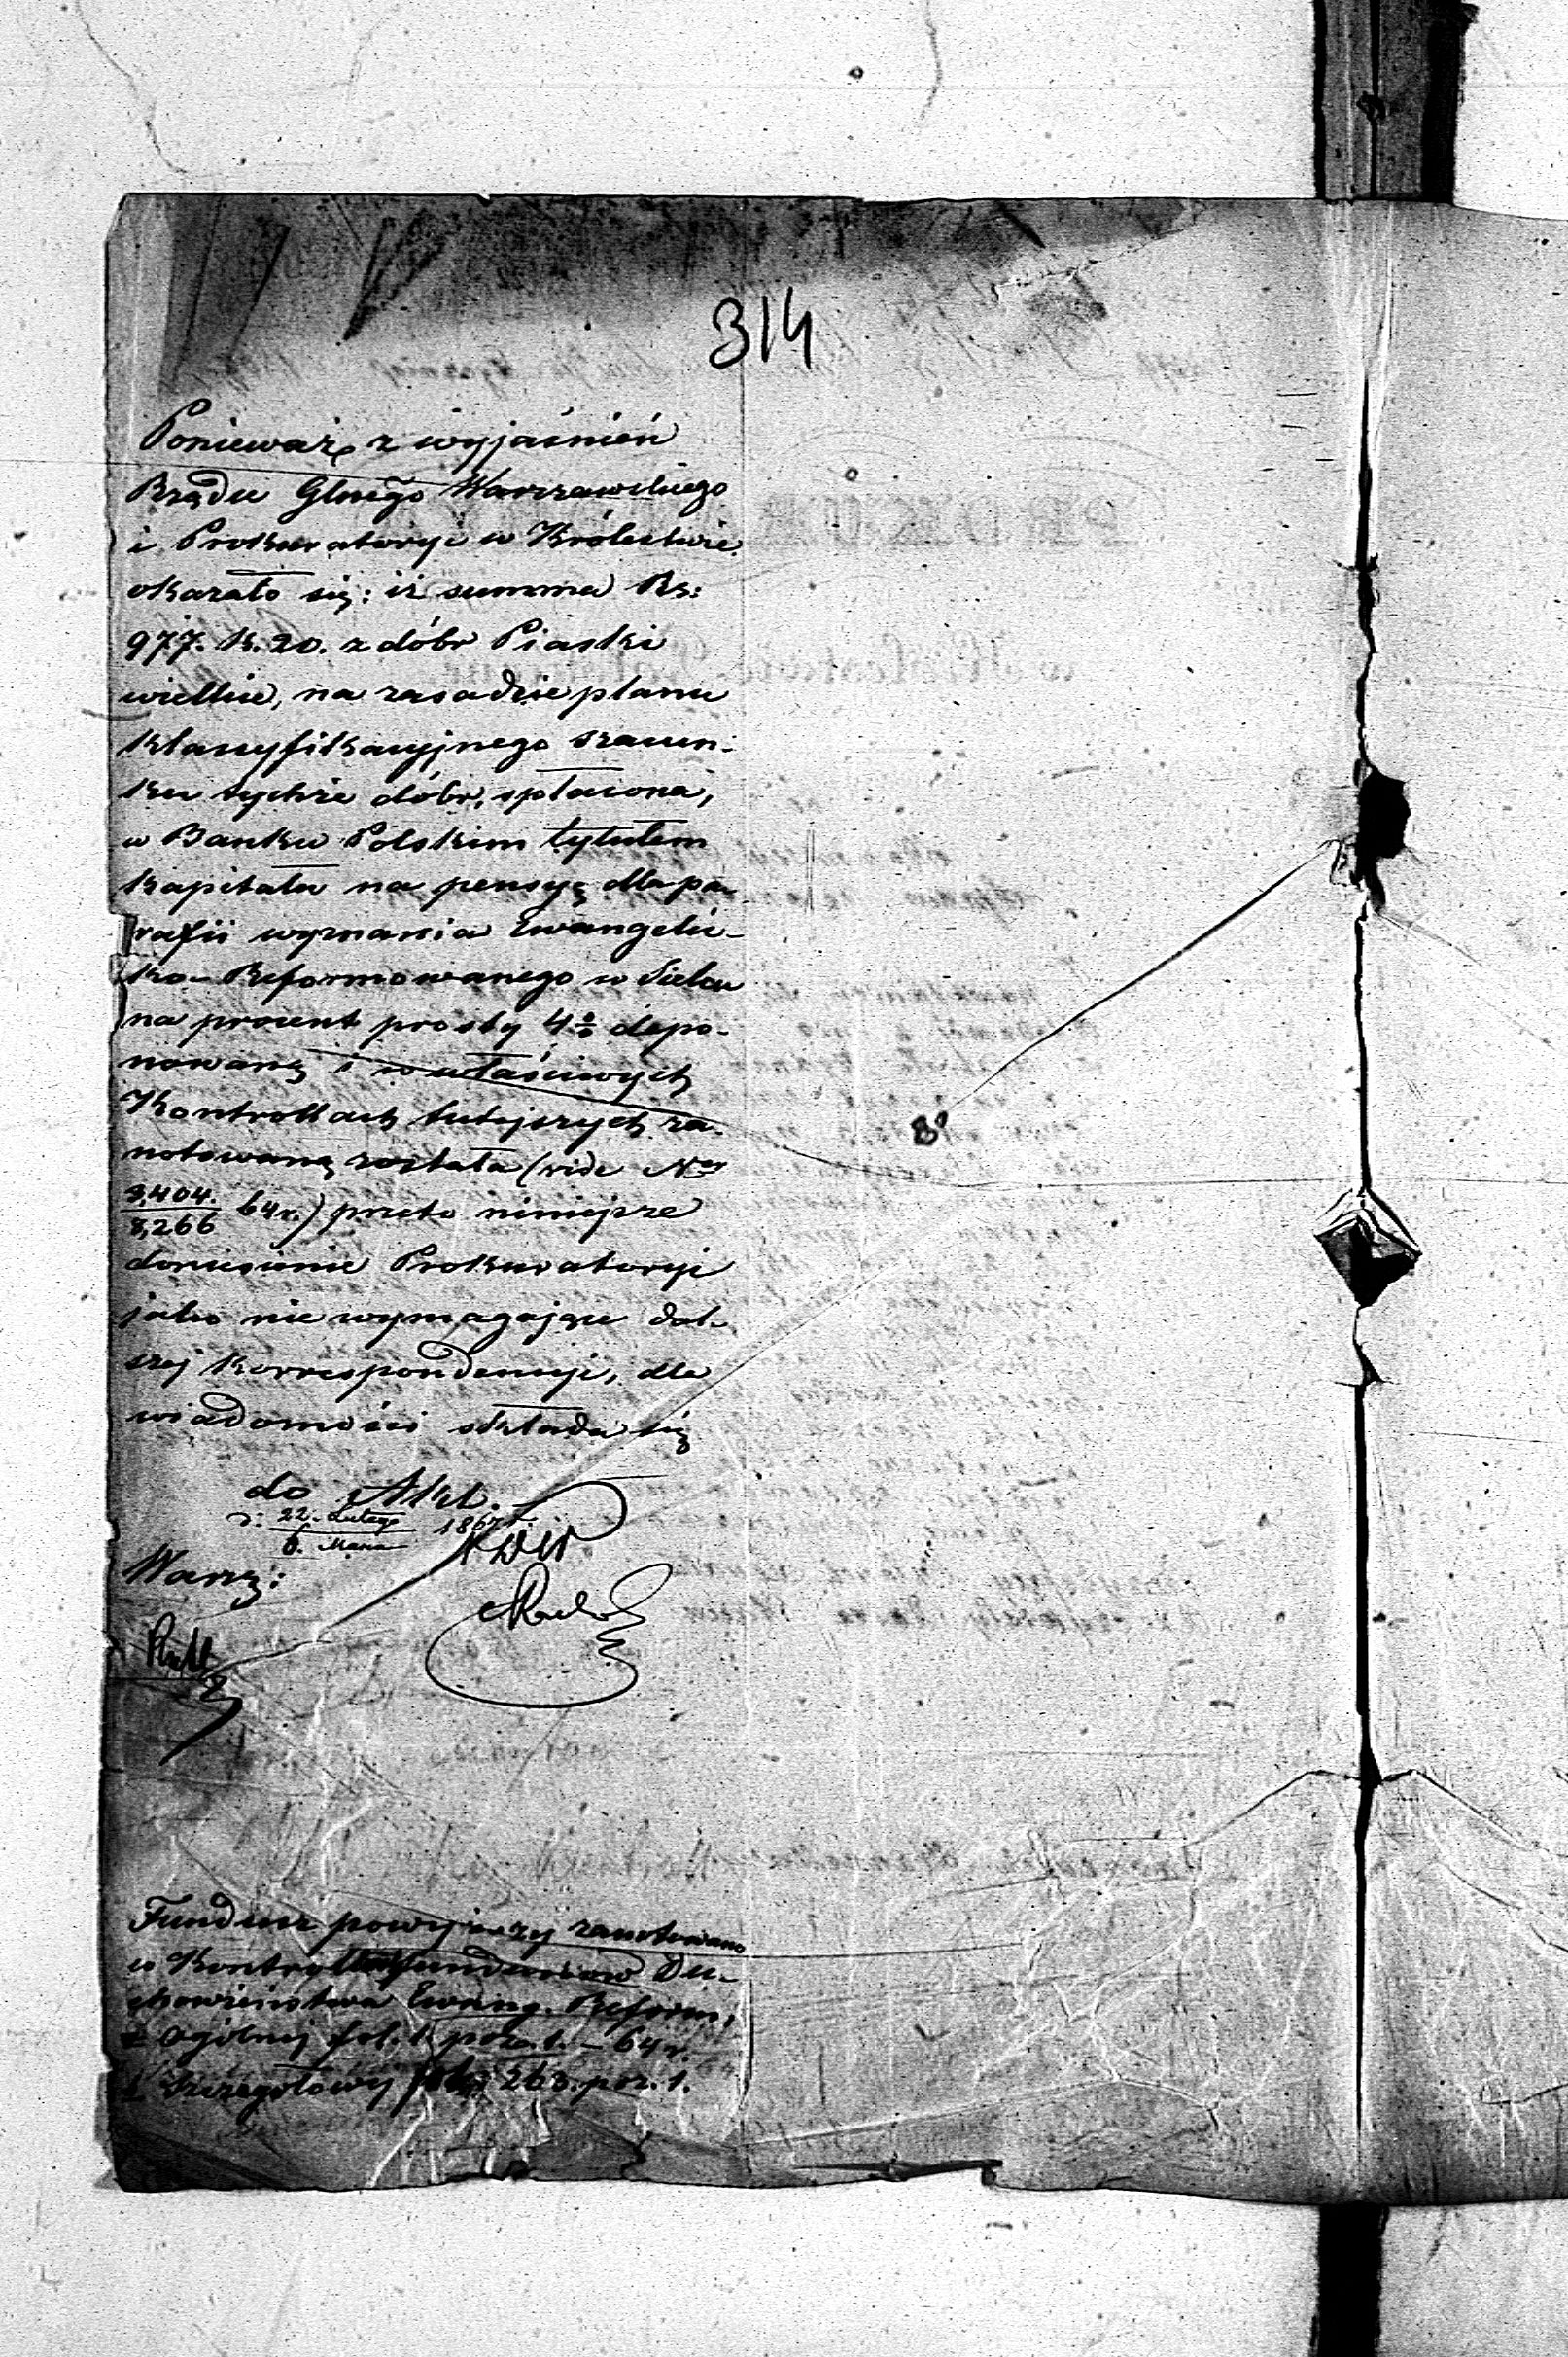 314
Ponieważ z wyjaśnień
Rządu Glnego Warszawskiego
i Prokuratoryi w Królestwie
okazało się: iż summa Rs:
977. k. 20. z dóbr Piaski
wielkie, na zasadzie planu
klassyfikacyjnego szacun-
ku tychże dóbr, spłacona,
w Banku Polskim tytułem
kapitału na pensyę dla pa-
rafii wyznania Ewangelic-
ko-Reformowanego w Sielcu
na procent prosty 4% depo-
nowaną i w właściwych
Kontrollach tutejszych za-
notowaną została (vide Nr
3,404.
8,266 64 r.) przeto niniejsze
doniesienie Prokuratoryi
jako nie wymagające dal-
szej korrespondencyi, dla
wiadomości składa się
do Akt.
d: 22. Lutego
6. Marca 1867 r.
Warsz:
Fundusz powyższy zanotowano
w Kontrolli funduszów Du-
chowieństwa Ewang. Reform,
Ogólnej fol. 1 poz. 1. – 64 r.
Szczegółowej 263. poz. 1.